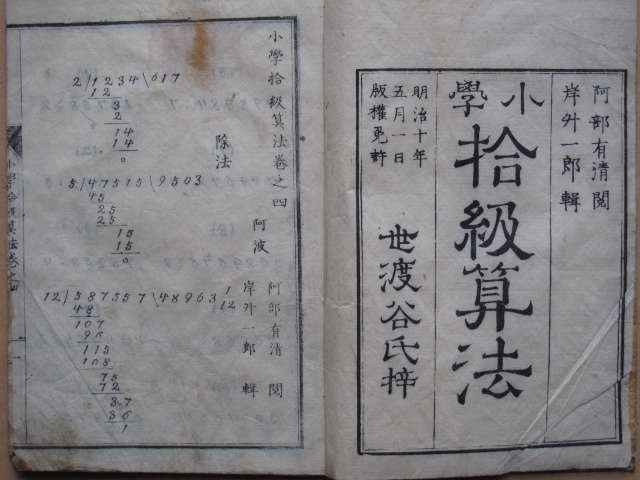 阿部有清閲
岸外一郎輯
小學
拾級算法
明治十年
五月一日
版權免許
世渡谷氏梓
小學拾級算法卷之四
阿波
阿部有清 閲
岸外一郎 輯
除法
2/1234\617
12
3
2
14
14
0
5/47515\9503
45
25
25
15
15
0
12/587557\48963 1/12
48
107
96
115
108
75
72
37
36
1
小學拾級算法卷之四